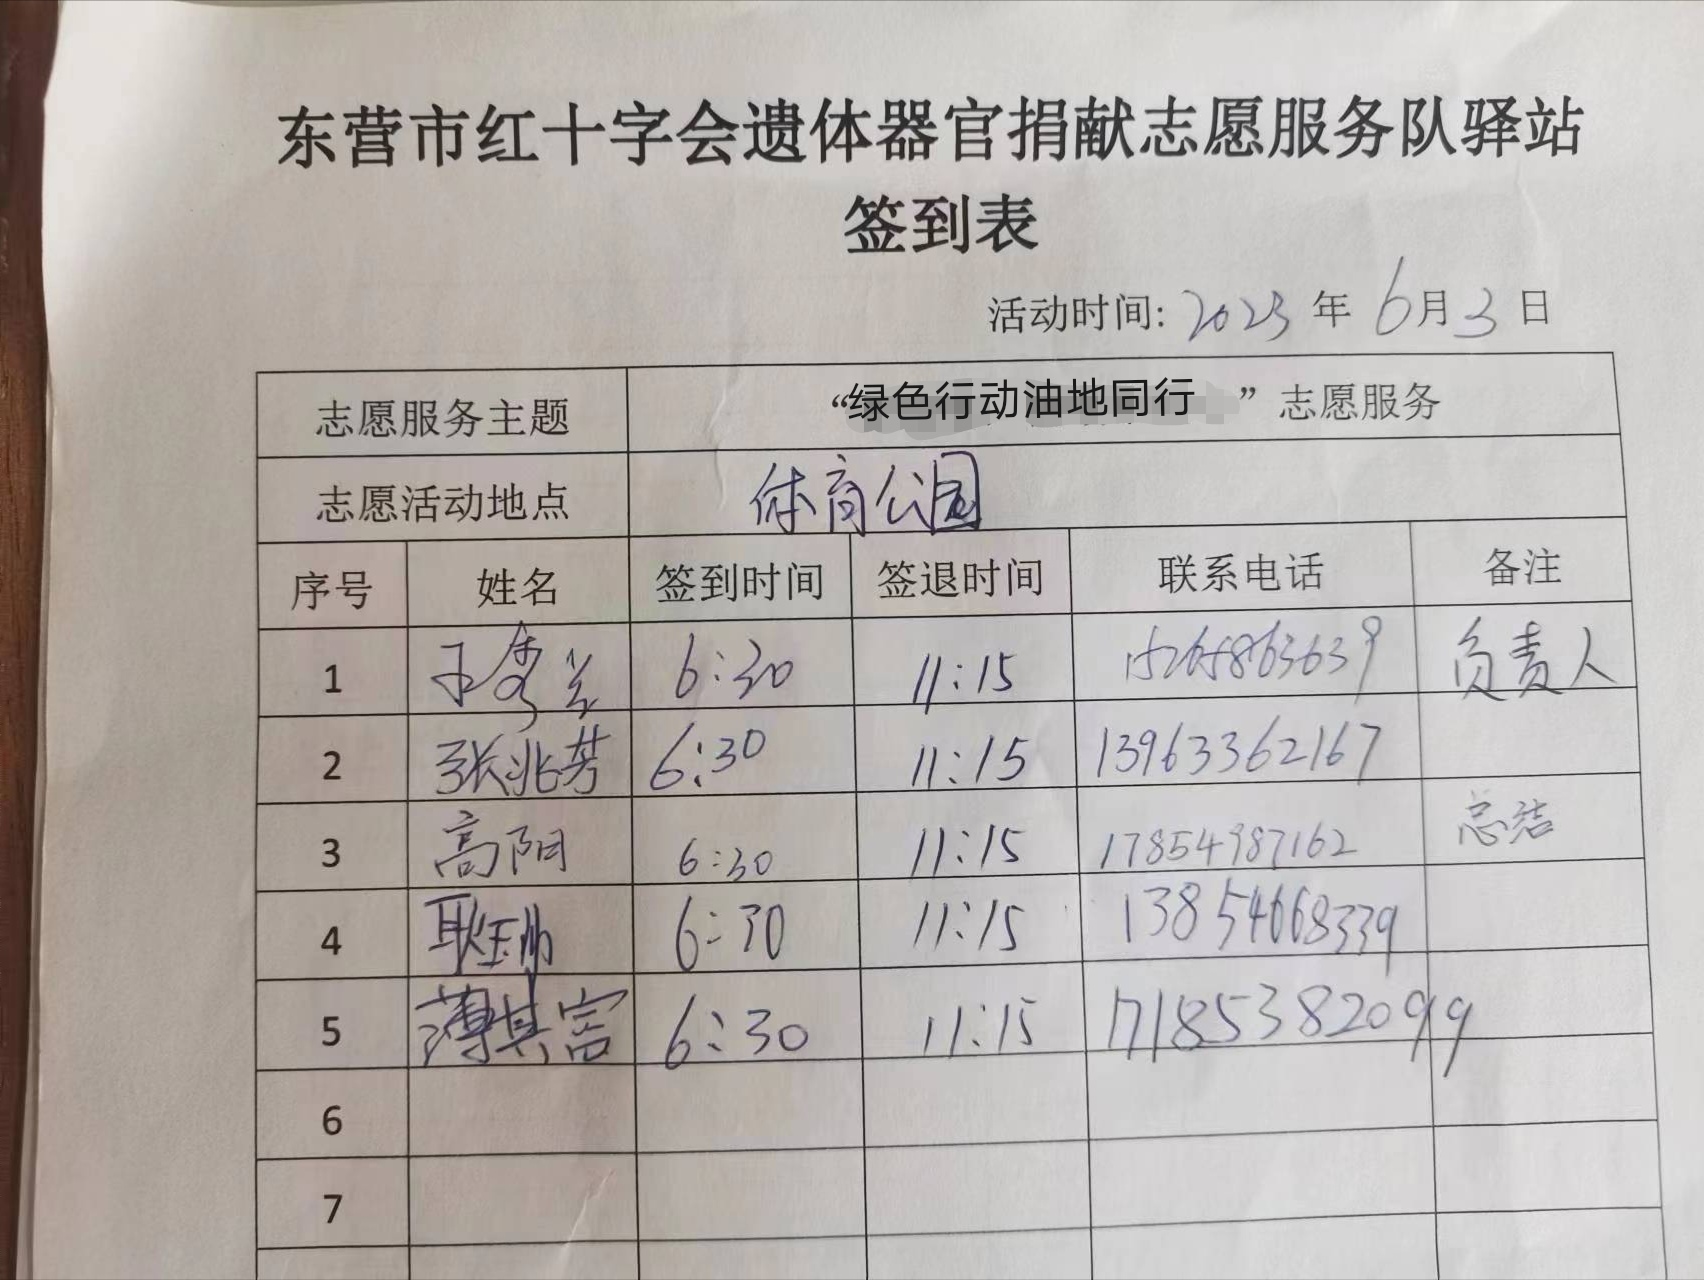 东营市红十字会遗体器官捐献志愿服务队驿站
签到表
活动时间: 2023 年 6 月 3 日
志愿服务主题 “绿色行动油地同行”志愿服务
志愿活动地点 体育公园
序号 姓名 签到时间 签退时间 联系电话 备注
1 王秀兰 6:30 11:15 15265863639 负责人
2 张兆芳 6:30 11:15 13963362167
3 高阳 6:30 11:15 17854987162 总结
4 耿玉帅 6:30 11:15 13854668339
5 薄其富 6:30 11:15 17185382099
6
7